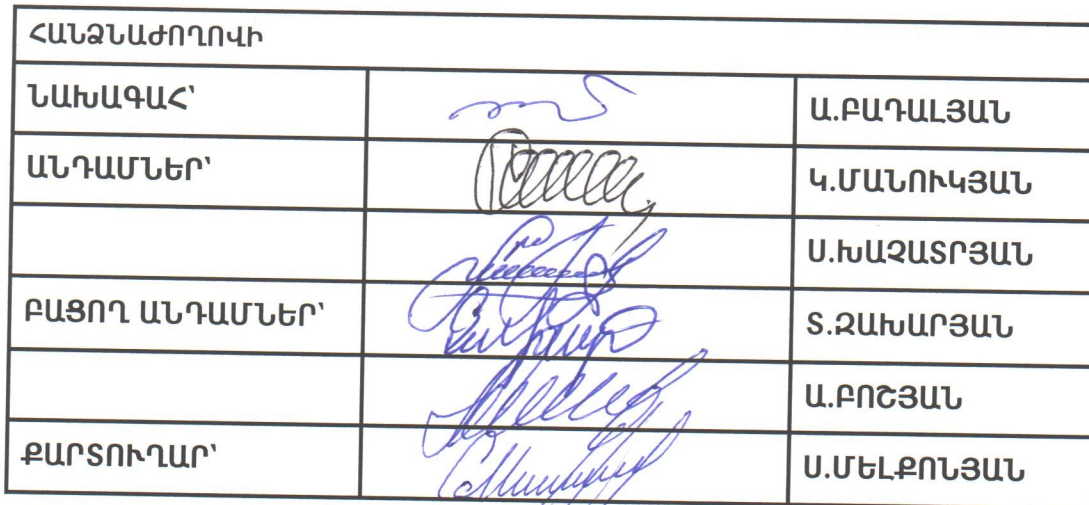 ՀԱՆՁՆԱԺՈՂՈՎԻ
ՆԱԽԱԳԱՀ՝ Ա.ԲԱԴԱԼՅԱՆ
ԱՆԴԱՄՆԵՐ՝ Կ.ՄԱՆՈՒԿՅԱՆ
Ս.ԽԱՉԱՏՐՅԱՆ
ԲԱՑՈՂ ԱՆԴԱՄՆԵՐ՝ Տ.ԶԱԽԱՐՅԱՆ
Ա.ԲՈՇՅԱՆ
ՔԱՐՏՈՒՂԱՐ՝ Ս.ՄԵԼՔՈՆՅԱՆ